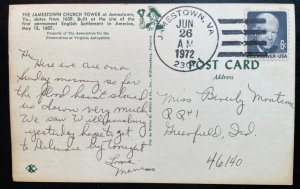 THE JAMESTOWN CHURCH TOWER at Jamestown,
Va., dates from 1639. Built at the site of the
first permanent English Settlement in America,
May 13, 1607.
Property of The Association for the
Preservation of Virginia Antiquities.
JAMESTOWN, VA
JUN
26
AM
1972
6¢
EISENHOWER·USA
POST CARD
Address
Hi
Here we are on a
Sunday morning so far
the flood hasn't slowed
us down very much
We saw Williamsburg
yesterday hope to get
to Delaware by tonight
Love
Miss Beverly
RR#1
Greenfield, Ind.
46140